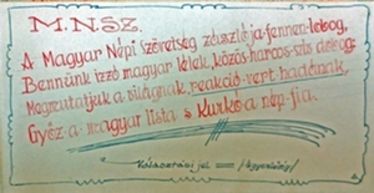 M.N.SZ.
A Magyar Népi Szövetség zászlója fennen lobog,
Bennünk izzó magyar lélek, közös harcos szív dobog:
Megmutatjuk a világnak, reakció vert hadának,
Győz a magyar lista s Kurkó a nép fia.
Választási jel = /egyenlőség/